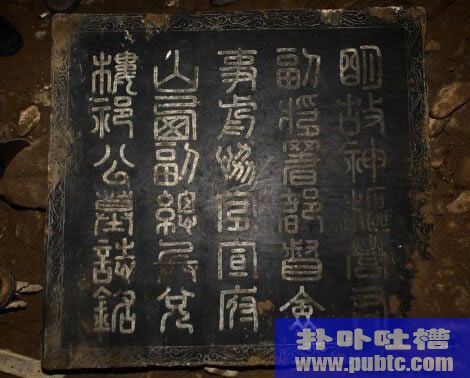 明故神樞營
副將署都督僉
事協守宣府
山西副總兵
樓祁公墓誌銘
扑卟吐槽
www.pubtc.com